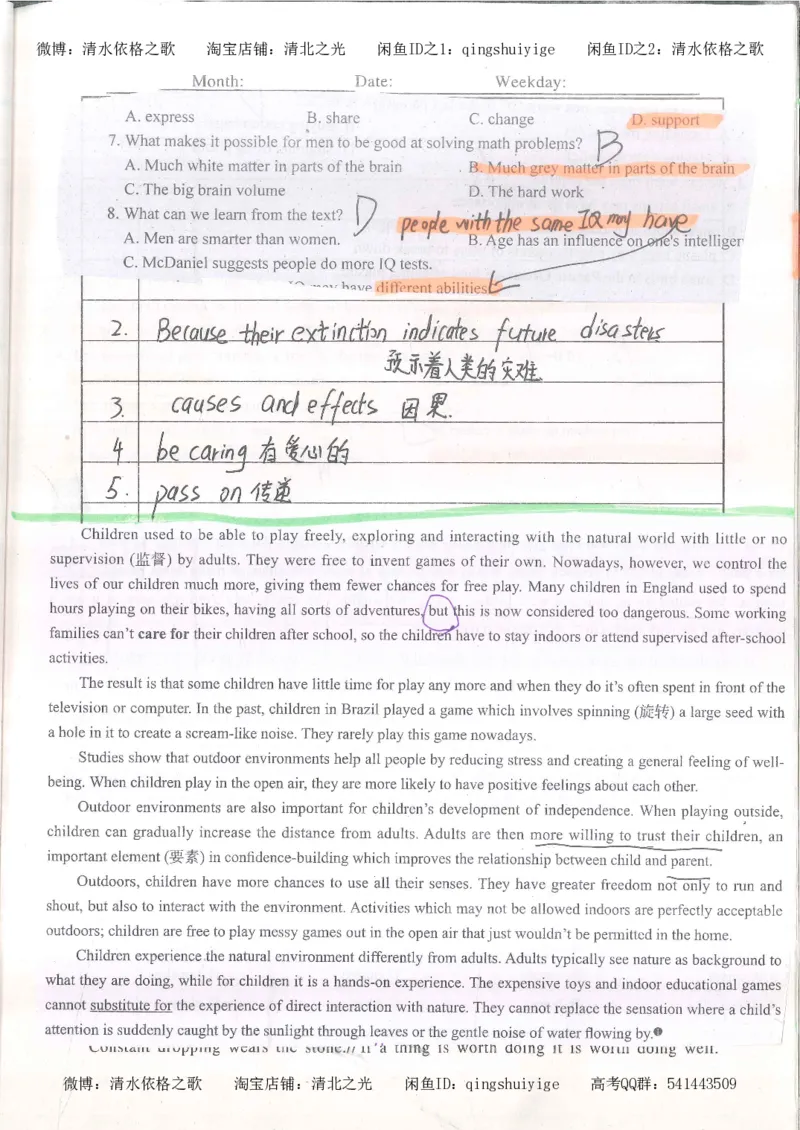 微博：清水依格之歌 淘宝店铺：清北之光 闲鱼ID之1：qingshuiyige 闲鱼ID之2：清水依格之歌
Month: Date: Weekday:
A. express B. share C. change D. support
7. What makes it possible for men to be good at solving math problems? B
A. Much white matter in parts of the brain B. Much grey matter in parts of the brain
C. The big brain volume D. The hard work
8. What can we learn from the text? D people with the same IQ may have
A. Men are smarter than women. B. Age has an influence on one's intelliger
C. McDaniel suggests people do more IQ tests.
IQ may have different abilities
2. Because their extinction indicates future disasters
预示着人类的灾难
3. causes and effects 因果.
4 be caring 有爱心的
5. pass on 传递
Children used to be able to play freely, exploring and interacting with the natural world with little or no
supervision (监督) by adults. They were free to invent games of their own. Nowadays, however, we control the
lives of our children much more, giving them fewer chances for free play. Many children in England used to spend
hours playing on their bikes, having all sorts of adventures, but this is now considered too dangerous. Some working
families can't care for their children after school, so the children have to stay indoors or attend supervised after-school
activities.
The result is that some children have little time for play any more and when they do it's often spent in front of the
television or computer. In the past, children in Brazil played a game which involves spinning (旋转) a large seed with
a hole in it to create a scream-like noise. They rarely play this game nowadays.
Studies show that outdoor environments help all people by reducing stress and creating a general feeling of well-
being. When children play in the open air, they are more likely to have positive feelings about each other.
Outdoor environments are also important for children's development of independence. When playing outside,
children can gradually increase the distance from adults. Adults are then more willing to trust their children, an
important element (要素) in confidence-building which improves the relationship between child and parent.
Outdoors, children have more chances to use all their senses. They have greater freedom not only to run and
shout, but also to interact with the environment. Activities which may not be allowed indoors are perfectly acceptable
outdoors; children are free to play messy games out in the open air that just wouldn't be permitted in the home.
Children experience the natural environment differently from adults. Adults typically see nature as background to
what they are doing, while for children it is a hands-on experience. The expensive toys and indoor educational games
cannot substitute for the experience of direct interaction with nature. They cannot replace the sensation where a child's
attention is suddenly caught by the sunlight through leaves or the gentle noise of water flowing by.❶
Constant dropping wears the stone.// If a thing is worth doing it is worth doing well.
微博：清水依格之歌 淘宝店铺：清北之光 闲鱼ID：qingshuiyige 高考QQ群：541443509